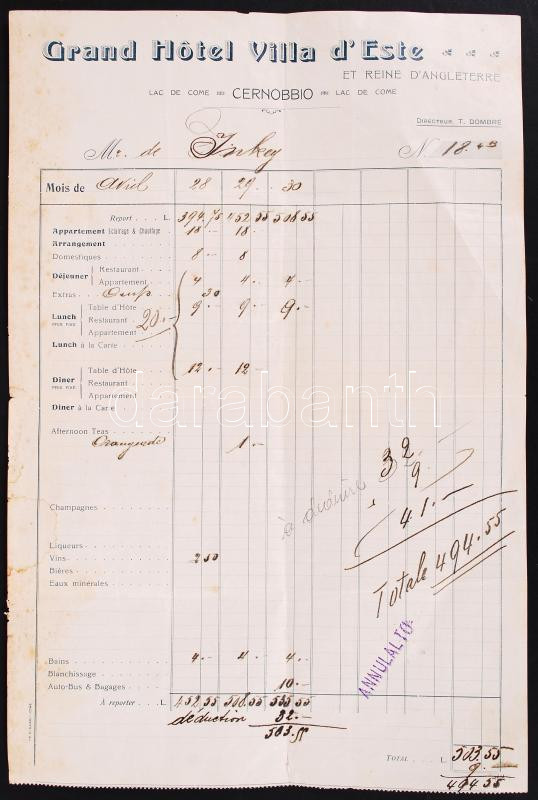 Grand Hôtel Villa d'Este
ET REINE D'ANGLETERRE
LAC DE COME CERNOBBIO LAC DE COME
DIRECTEUR, T. DOMBRE
Mr. de Inkey N. 18.
Mois de Avril 28 29 30
Report L. 394.75 452.55 508.55
Appartement Eclairage & Chauffage 18.- 18.-
Arrangement
Domestiques 8.- 8
Déjeuner Restaurant
Appartement 4 4.- 4.-
Extras 30
Lunch PRIX FIXE Table d'Hôte 9.- 9.- 9.-
Restaurant 20.-
Appartement
Lunch à la Carte
Diner PRIX FIXE Table d'Hôte 12.- 12.-
Restaurant
Appartement
Diner à la Carte
darabanth
Afternoon Teas
Orangeade 1.-
32
9
à déduire
41.-
Totale 494.55
Champagnes
Liqueurs
Vins 2 50
Bières
Eaux minérales
ANNULALTO
Bains 4.- 4.- 4.-
Blanchissage
Auto-Bus & Bagages 10.-
À reporter L. 452.55 508.55 535.55
déduction 32.-
503.55
TOTAL L. 503.55
9.
494.55